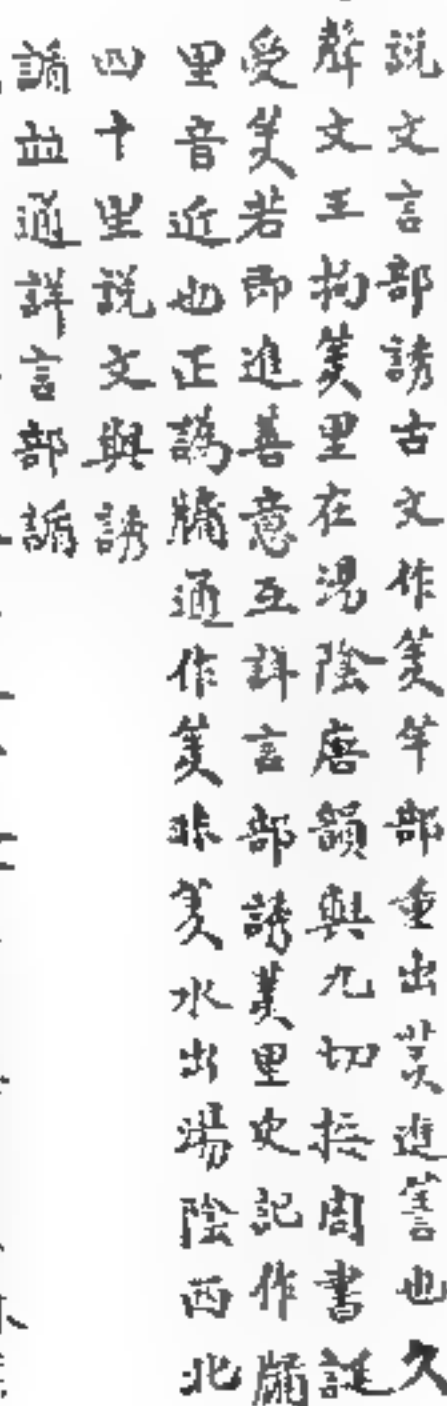 説文言部誘古文作羑羊部重出羑進善也久
聲文王拘羑里在湯陰唐韻與九切按周書誕
受羑若即進善意互詳言部誘羑里史記作牖
里音近也正譌牖通作羑非羑水出湯陰西北
四十里説文與誘
䛻並通詳言部䛻